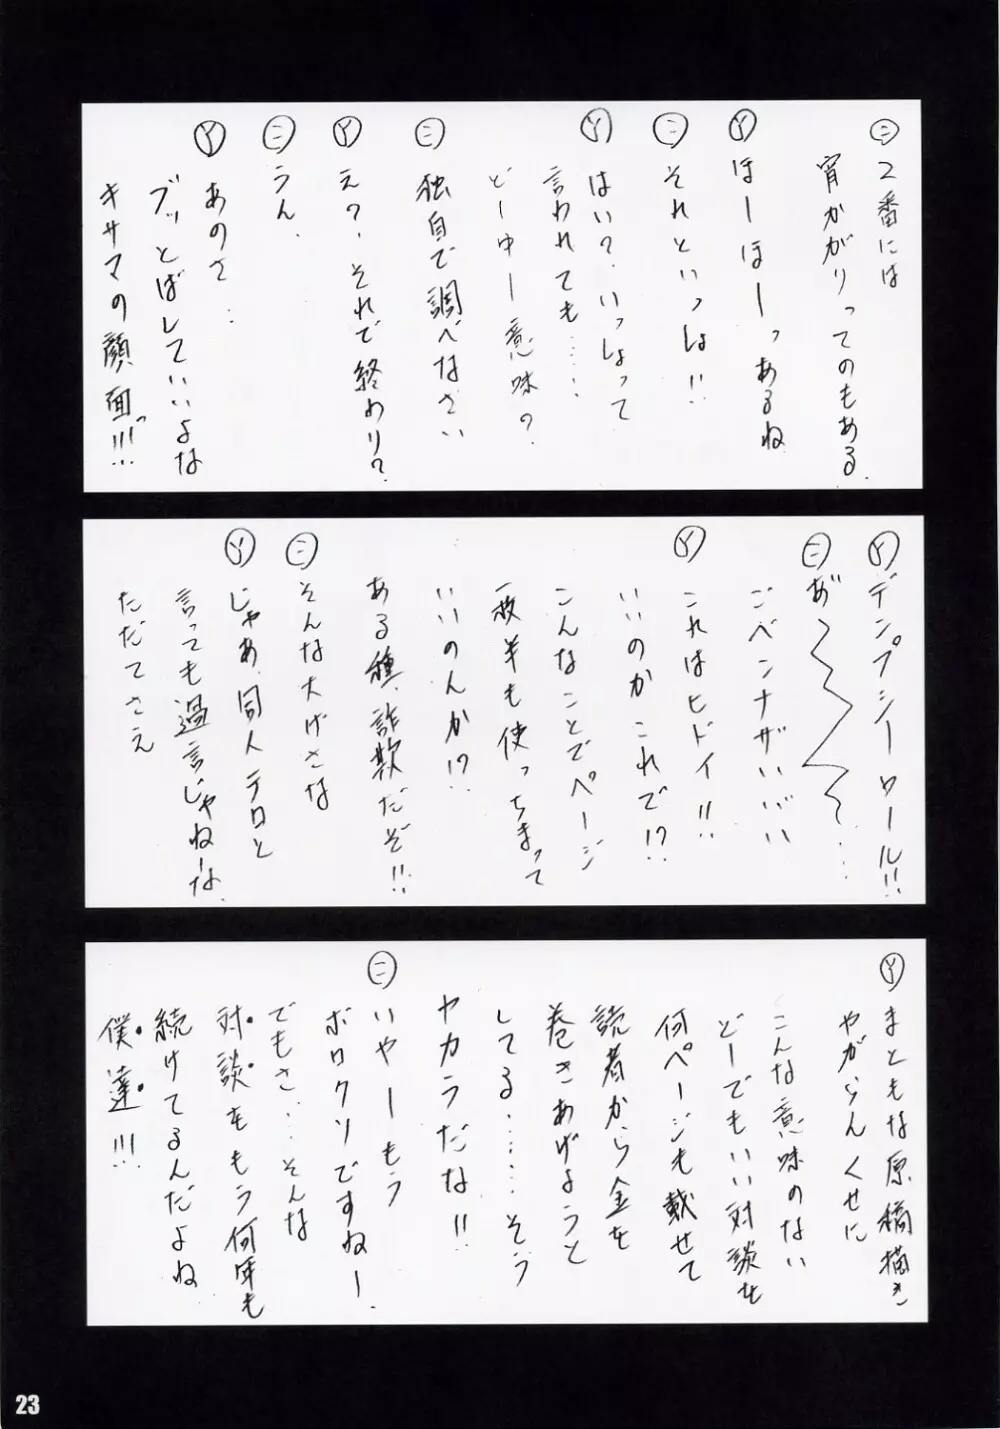 ㊁2番には
宵かがりってのもある。
Ⓨほーほーっあるね
㊁それといっしょ!!
Ⓨはい?いっしょって
言われても……
どーゆー意味?
㊁独自で調べなさい
Ⓨえ?、それで終わり?
㊁うん、
Ⓨあのさ…
ブッとばしていいよな
キサマの顔面っ!!!
Ⓨデンプシーロール!!
㊁あ゛〜〜〜…
ごべンナザいバい
Ⓨこれはヒドイ!!
いいのかこれで!?
こんなことでページ
一枚半も使っちまって
いいのんか!?
ある種、詐欺だぞ!!
㊁そんな大げさな
Ⓨじゃあ、同人テロと
言っても過言じゃねーな、
ただでさえ
Ⓨまともな原稿描き
やがらんくせに
こんな意味のない
どーでもいい対談を
何ページも載せて
読者から金を
巻きあげようと
してる……そう
ヤカラだな!!
㊁いやーもう
ボロクソですねー、
でもさ…そんな
対談をもう何年も
続けてるんだよね
僕達!!!
23